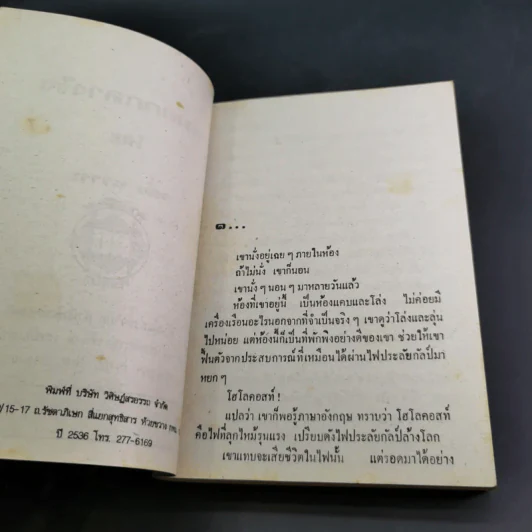 พิมพ์ที่ บริษัท วิศิษฎ์สรอรรถ จำกัด
/15-17 ถ.รัชดาภิเษก สี่แยกสุทธิสาร ห้วยขวาง กทม.
ปี 2536 โทร. 277-6169
๑...
เขานั่งอยู่เฉย ๆ ภายในห้อง
ถ้าไม่นั่ง เขาก็นอน
เขานั่ง ๆ นอน ๆ มาหลายวันแล้ว
ห้องที่เขาอยู่นี้ เป็นห้องแคบและโล่ง ไม่ค่อยมี
เครื่องเรือนอะไรนอกจากที่จำเป็นจริง ๆ เขาดูว่าโล่งและลุ่น
ไปหน่อย แต่ห้องนี้ก็เป็นที่พักพิงอย่างดีของเขา ช่วยให้เขา
ฟื้นตัวจากประสบการณ์ที่เหมือนได้ผ่านไฟประลัยกัลป์มา
หยก ๆ
โฮโลคอสท์ !
แปลว่า เขาก็พอรู้ภาษาอังกฤษ ทราบว่า โฮโลคอสท์
คือไฟที่ลุกไหม้รุนแรง เปรียบดังไฟประลัยกัลป์ล้างโลก
เขาแทบจะเสียชีวิตในไฟนั้น แต่รอดมาได้อย่าง